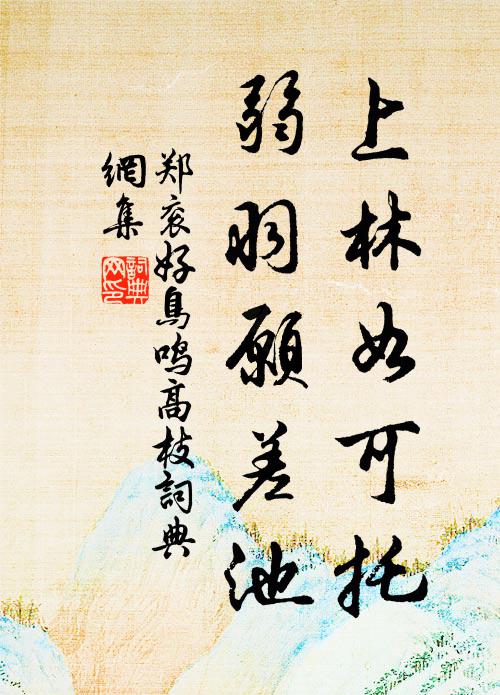 上林如可托
弱羽愿差池
郑衮好鸟鸣高枝词典
網集
詞典網印